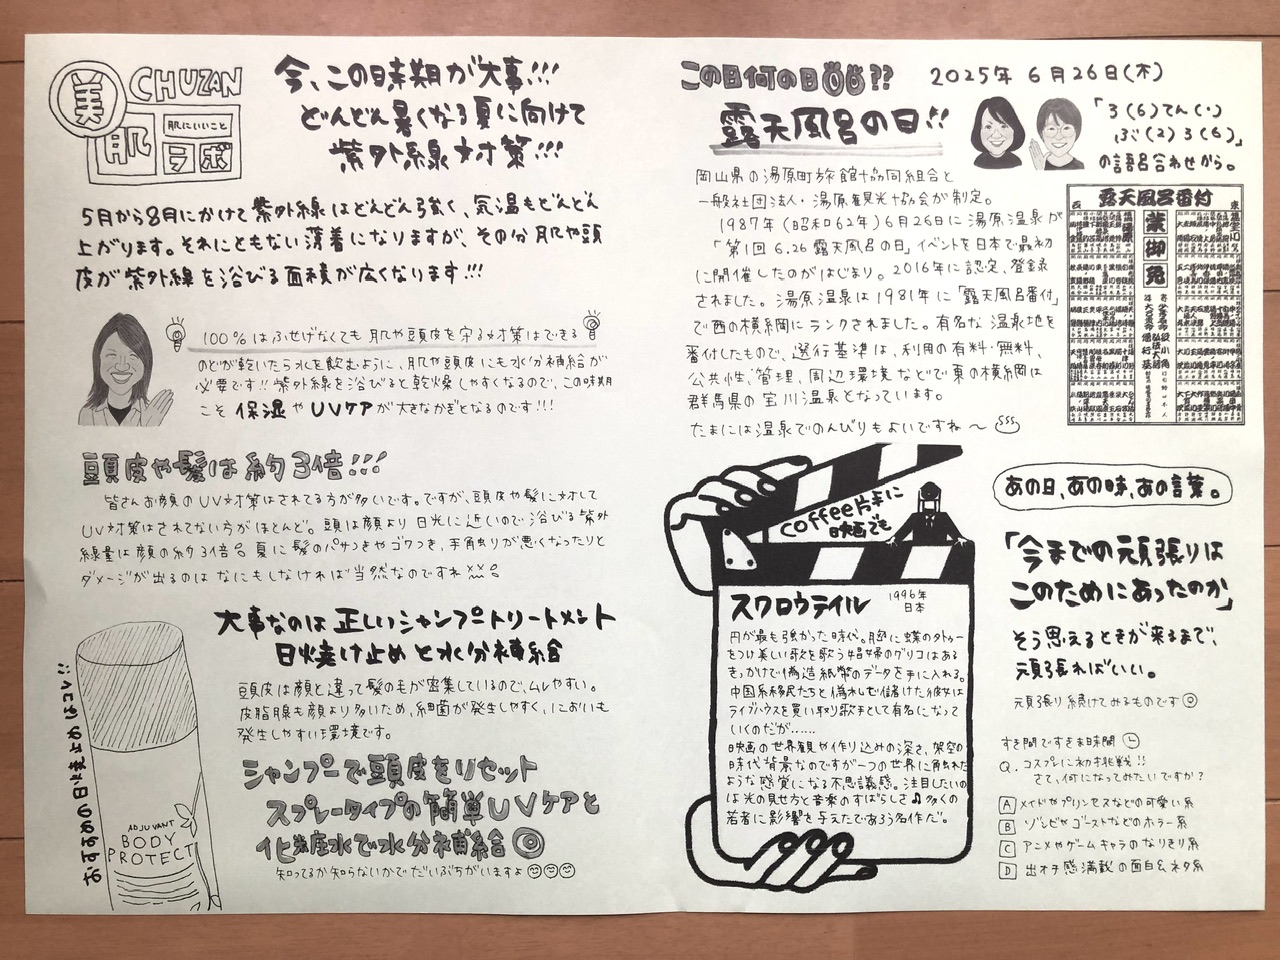 美
CHUZAN
肌
肌にいいこと
ラボ
今、この時期が大事!!!
どんどん暑くなる夏に向けて
紫外線対策!!!
5月から8月にかけて紫外線はどんどん強く、気温もどんどん
上がります。それにともない薄着になりますが、その分肌や頭
皮が紫外線を浴びる面積が広くなります!!!
100%はふせげなくても肌や頭皮を守る対策はできる
のどが乾いたら水を飲むように、肌や頭皮にも水分補給が
必要です!!紫外線を浴びると乾燥しやすくなるので、この時期
こそ保湿やUVケアが大きなかぎとなるのです!!!
頭皮や髪は約3倍!!!
皆さんお顔のUV対策はされてる方が多いです。ですが、頭皮や髪に対して
UV対策はされてない方がほとんど。頭は顔より日光に近いので浴びる紫外
線量は顔の約3倍 夏に髪のパサつきやゴワつき、手触りが悪くなったりと
ダメージが出るのはなにもしなければ当然なのですね
大事なのは正しいシャンプートリートメント
日焼け止めと水分補給
頭皮は顔と違って髪の毛が密集しているので、ムレやすい。
皮脂腺も顔より多いため、細菌が発生しやすく、においも
発生しやすい環境です。
シャンプーで頭皮をリセット
スプレータイプの簡単UVケアと
化粧水で水分補給◎
知ってるか知らないかでだいぶちがいますよ
おすすめの日焼け止めはコレ!!
ADJUVANT
BODY
PROTECT
この日何の日??
2025年6月26日(木)
露天風呂の日!!
「3(6)てん(・)
ぶ(2)3(6)」
の語呂合わせから。
岡山県の湯原町旅館協同組合と
一般社団法人・湯原観光協会が制定。
1987年(昭和62年)6月26日に湯原温泉が
「第1回6.26露天風呂の日」イベントを日本で最初
に開催したのがはじまり。2016年に認定、登録
されました。湯原温泉は1981年に「露天風呂番付」
で西の横綱にランクされました。有名な温泉地を
番付したもので、選行基準は、利用の有料・無料、
公共性、管理、周辺環境などで東の横綱は
群馬県の宝川温泉となっています。
たまには温泉でのんびりもよいですね〜
西
露天風呂番付
東
蒙御免
coffee片手に
映画でも
スワロウテイル
1996年
日本
円が最も強かった時代。胸に蝶のタトゥー
をつけ美しい歌を歌う娼婦のグリコはある
きっかけで偽造紙幣のデータを手に入れる。
中国系移民たちと偽札で儲けた彼女は
ライブハウスを買い取り歌手として有名になって
いくのだが……
映画の世界観や作り込みの深さ、架空の
時代背景なのですが一つの世界に触れた
ような感覚になる不思議感。注目したいの
は光の見せ方と音楽のすばらしさ♪多くの
若者に影響を与えたであろう名作だ。
あの日、あの時、あの言葉。
「今までの頑張りは
このためにあったのか」
そう思えるときが来るまで、
頑張ればいい。
頑張り続けてみるものです◎
すき間ですきま時間
Q. コスプレに初挑戦!!
さて、何になってみたいですか?
A メイドやプリンセスなどの可愛い系
B ゾンビやゴーストなどのホラー系
C アニメやゲームキャラのなりきり系
D 出オチ感満載の面白&ネタ系